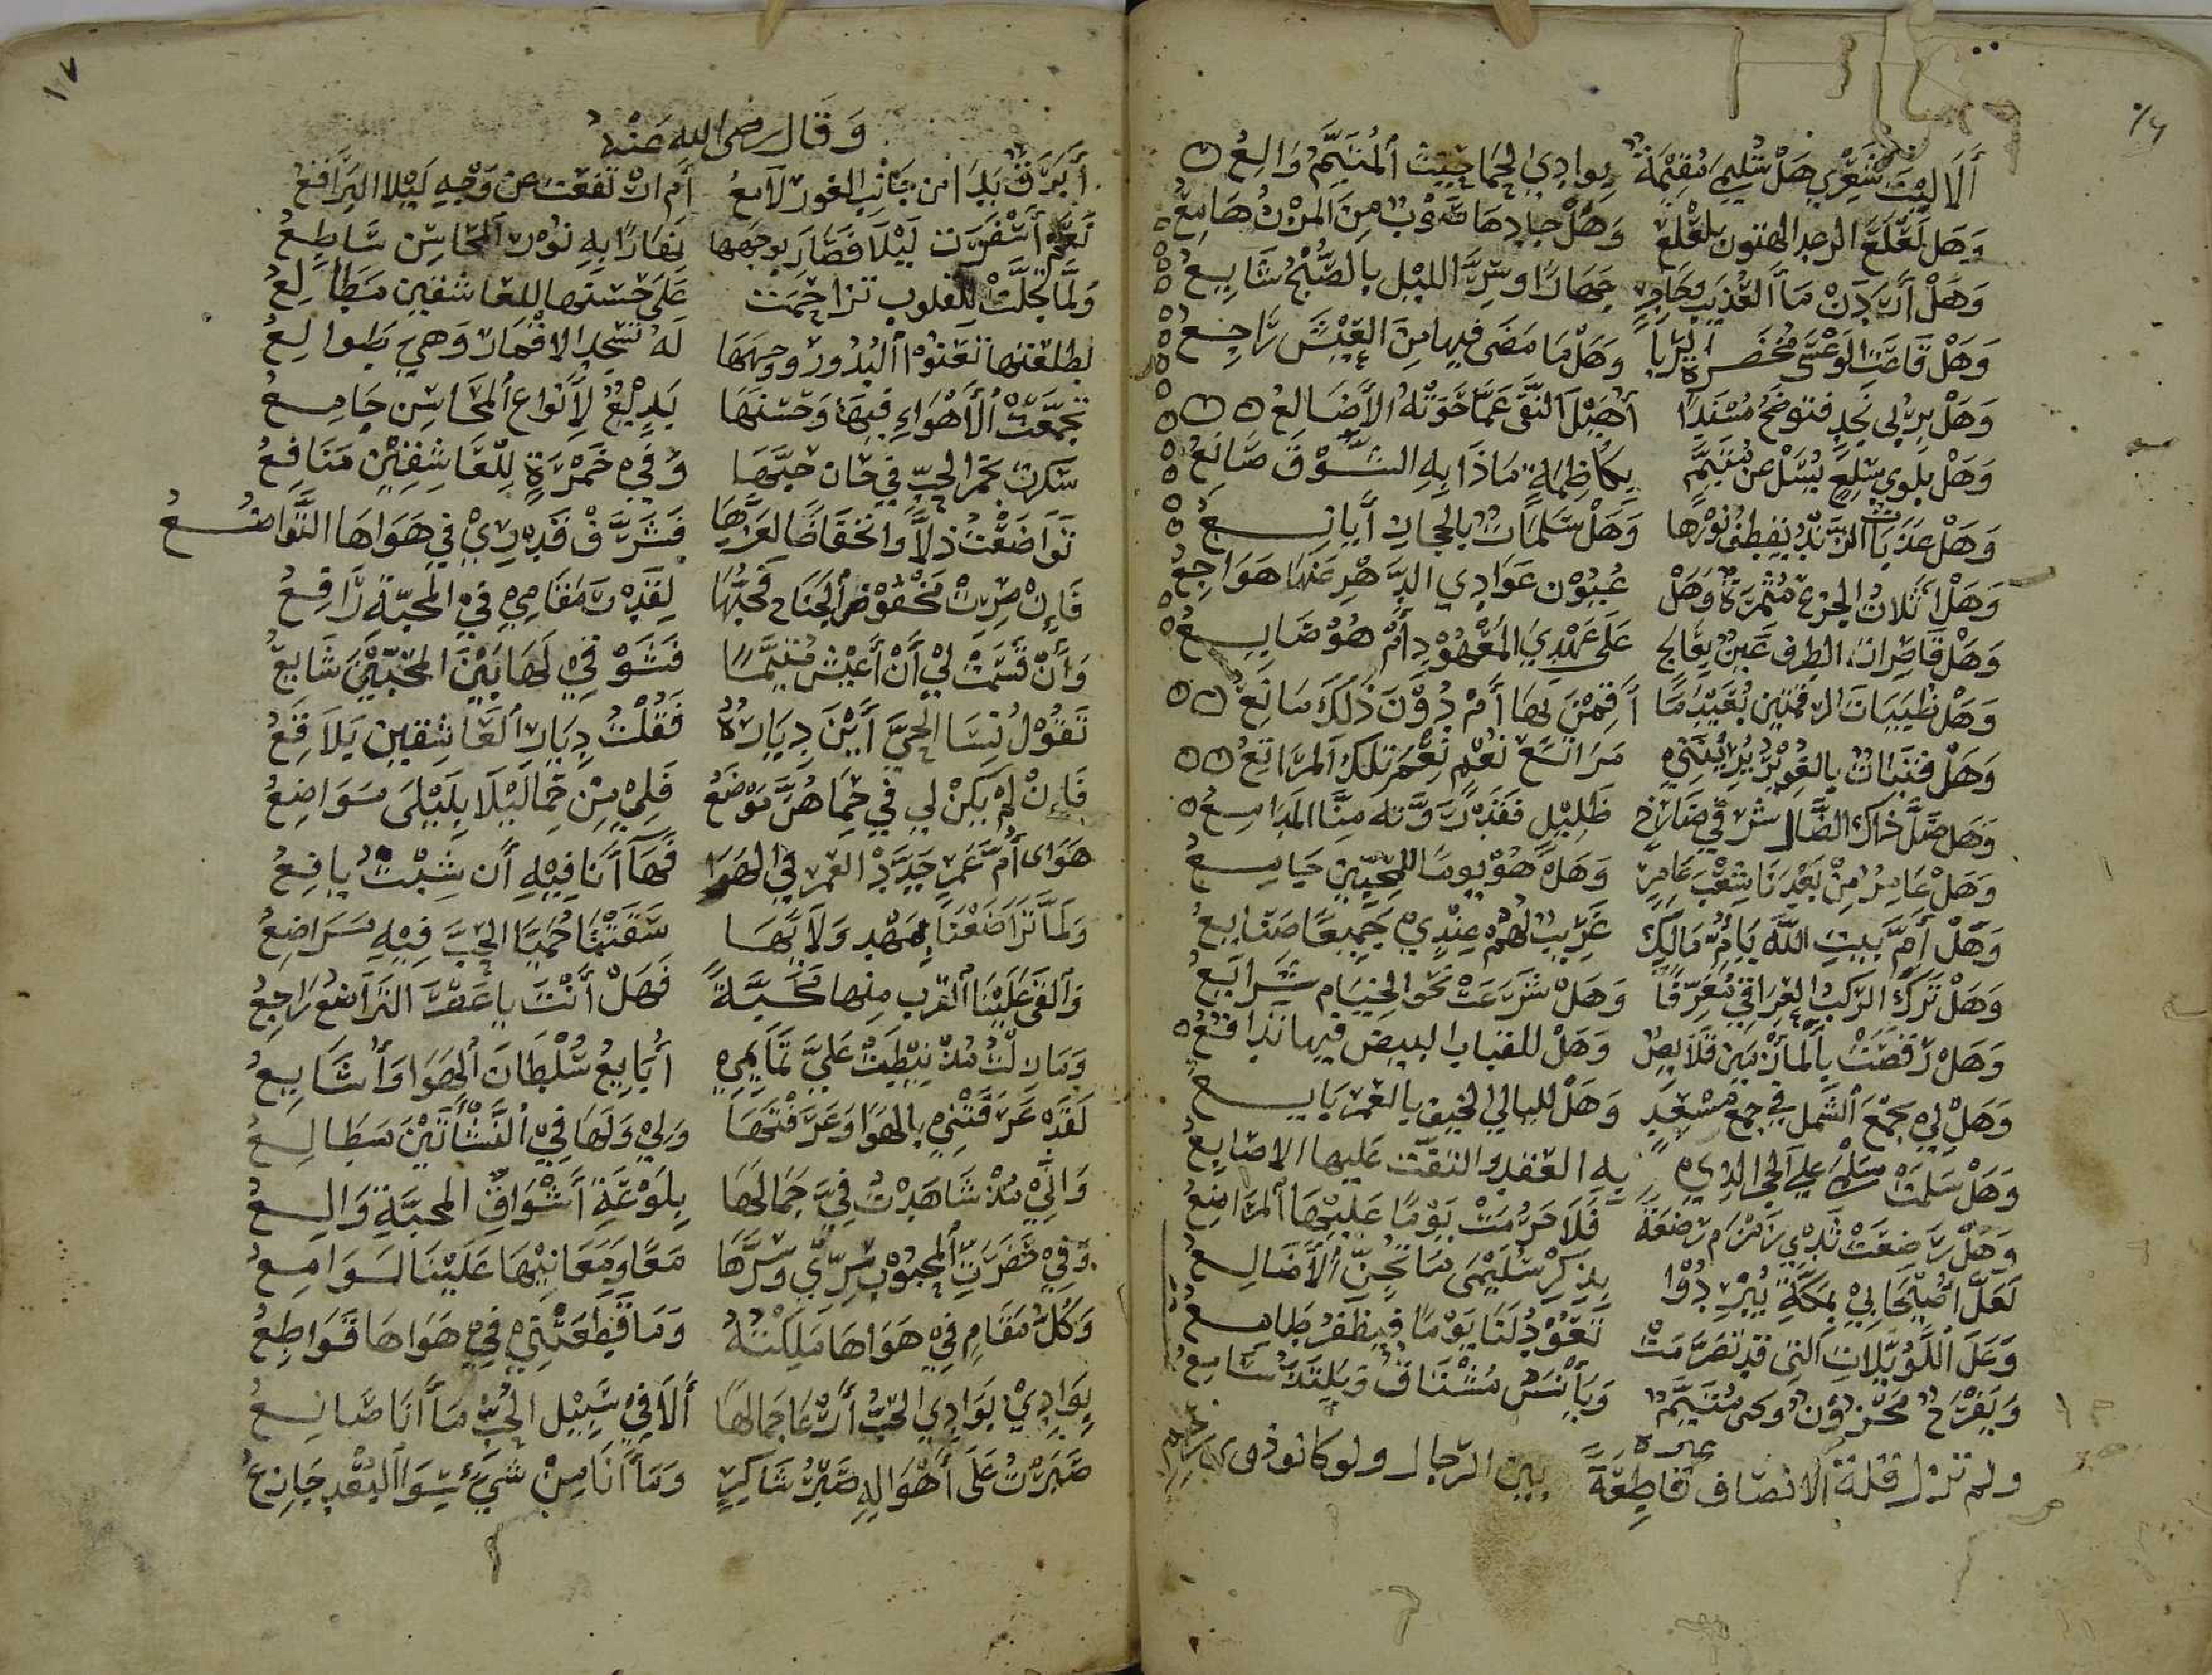 ١٦
أَلَا لَيْتَ شِعْرِي هَلْ سُلَيْمَى مُقِيمَةٌ بِوَادِي الحِمَا حَيْثُ المُتَيَّمُ وَالِعُ
وَهَل لَعْلَعَ الرعد الهتون بلعلع وَهَلْ جادها صَوْبٌ مِنَ المُزْنِ هَامِعُ
وَهَلْ أَرِدَنْ مَآءَ العُذَيْبِ وَحَاجِرٍ جِهَارًا وسِرُّ الليْلِ بِالصُّبْحِ شَايِعُ
وَهَلْ قَاعَةُ الوَعْسَى مُخْضَرَّةُ الرُّبَا وَهَلْ مَا مَضَى فِيهَا مِنَ العَيْشِ رَاجِعُ
وَهَلْ بِرُبَى نَجْدٍ فتوضح مُسْنَدًا أُهَيْلَ النَّقَى عَمَّا حَوَتْهُ الأَضَالِعُ
وَهَلْ بِلِوَى سَلْعٍ يُسَلْ عن مُتَيَّمٍ بِكَاظِمَةٍ مَاذَا بِهِ الشَّوْقَ صَانِعُ
وَهَلْ عَذَبَاتُ الرَّنْدِ يُقْطَفُ نَوْرُهَا وَهَلْ سَلَمَاتٌ بِالحِجَازِ أَيَانِعُ
وَهَلْ أَثَلاتُ الجِزْعِ مُثْمِرَةٌ وَهَلْ عُيُوْن عَوَادِي الدَّهْرِ عَنْهَا هَوَاجِعُ
وَهَلْ قَاصِرَاتُ الطرف عِينٌ بِعَالِجٍ عَلَى عَهْدِيَ المَعْهُوْدِ أَمْ هُوْ ضَايِعُ
وَهَلْ ظَبَيَاتُ الرقمتين بُعَيْدَمَا أَقِمْنَ بِهَا أَمْ دُوْنَ ذَلِكَ مَانِعُ
وَهَلْ فَتَيَاتٌ بِالغُوَيْرِ يُرِيْنَنِيْ مَرَاتِعَ نُعْمٍ نِعْمَ تِلْكَ المَرَاتِعُ
وَهَل ظِلُّ ذاك الضَّالِ شرقي ضَارِجٍ ظَلِيْلٍ فَقَدْ رَوَّتْهُ مِنَّا المَدَامِعُ
وَهَلْ عَامِرٌ مِنْ بَعْدِنَا شِعْبُ عَامِرٍ وَهَلْ هُوَ يومًا لِلمُحِبِّيْنَ جَامِعُ
وَهَلْ أَمَّ بَيْتَ اللهِ يَا أُمَّ مَالِكٍ عُرَيْبٌ لَهُمْ عِنْدِيْ جَمِيعًا صَنَايِعُ
وَهَلْ نَزَلَ الرَّكْبُ العِرَاقِيْ مُعَرِّفًا وَهَلْ شُرِّعَتْ نَحْوَ الخِيَامِ شَرَايِعُ
وَهَلْ رَقَصَتْ بِالمَأْزِمَيْنِ قَلَايِصٌ وَهَلْ لِلقِبَابِ البِيضِ فيها تَدَافُعُ
وَهَلْ لِيْ بِجَمْعِ الشَّمْلِ في جَمْعَ مُسْعِدٍ وَهَلْ لِلَيَالِي الخَيْفِ بِالعُمْرِ بَايِعُ
وَهَلْ سَلَّمَتْ سَلْمَى عَلَى الحجر الذِيْ بِهِ العَقْدُ والتفّت عليها الاصَابِعُ
وَهَلْ رَضِعَتْ ثَدْيَ زَمْزَم رَضْعَةً فَلَا حُرِّمَتْ يَوْمًا عَلَيْهَا المَرَاضِعُ
لَعَلَّ أُصَيْحَابِيْ بِمَكَّةَ يُبْرِدُوْا بِذِكْرِ سُلَيْمَى مَا تُجِنُّ الأَضَالِعُ
وَعَلَّ اللُّوَيْلَاتِ الَّتِي قَدْ تَصَرَّمَتْ تَعُوْدُ لَنَا يَوْمًا فَيَظْفَرُ طَامِعُ
وَيَفْرَحُ مَحْزُوْنٌ وَيَحْيَ مُتَيَّمٌ وَيَأْنَسُ مُشْتَاقٌ وَيَلْتَذُّ سَامِعُ
غيره
ولم تزل قلة الانصاف قاطِعَةً بين الرجال ولو كانوا ذوى رحم
١٧
وَقَالَ رضى الله عَنْهُ
أَبَرْقٌ بَدَا من جَانِبِ الغور لَامِعُ أَمِ ارْتَفَعَتْ عن وَجْهِ لَيْلَا البَرَاقِعُ
نَعَمْ أَسْفَرَتْ لَيْلًا فَصَارَ بوجهها نَهَارًا بِهِ نُوْرُ المَحَاسِنِ سَاطِعُ
وَلَمَّا تَجَلَّتْ لِلْقلوب تزاحَمَت عَلَى حُسْنِهَا لِلعَاشقين مَطَالِعُ
لطلعتها تَعْنُوْا البُدُورُ وَوجهها لَهُ تَسْجُدُ الاقْمَارُ وَهِيَ طَوَالِعُ
تَجَمَّعَتِ الأَهْوَاءُ فِيهَا وَحُسْنُهَا بَدِيْعٌ لِأَنْوَاعِ المَحَاسِنِ جَامِعُ
سَكِرْتُ بخمر الحبِّ فِي حَان حَيِّهَا وَفِيْ خَمْرَةٍ لِلعَاشِقِيْنَ مَنَافِعُ
تَوَاضَعْتُ ذُلًّا وانخفاضًا لِعِزِّهَا فَشَرَّفَ قَدْرِيْ فِي هَوَاهَا التَّوَاضُعُ
فَإِنْ صِرْتُ مَخْفُوْضَ الجَنَاحِ فَحُبُّهَا لِقَدْرِ مَقَامِيْ فِي المَحَبَّةِ رَافِعُ
وَأَنْ قَسَمَتْ لِيْ أَنْ أَعِيْشَ مُتَيَّمًا فَشَوْقِيْ لَهَا بَيْنَ المُحِبِّيْنَ شَايِعُ
تَقُوْلُ نِسَا الحَيِّ أَيْنَ دِيَارُهُ فَقُلْتُ دِيَارُ العَاشِقِينَ بَلَاقِعُ
فَإِنْ لَمْ يَكُنْ لِي فِي حِمَاهُنَّ مَوْضِعُ فَلِيْ فِيْ حِمَا لَيْلَا بِلَيْلَى مَوَاضِعُ
هَوَى أُمِّ عَمْرٍ جَدَّدَ العُمْرَ فِي الهَوَا فَهَا أَنَا فِيْهِ أَن شِبْتُ يافِعُ
وَلَمَّا تَرَاضَعْنَا بِمَهْدِ وَلَائِهَا سَقَتْنَا حُمَيَّا الحُبِّ فِيْهِ مَرَاضِعُ
وَألْقَى عَلَيْنَا القرب منها مَحَبَّةً فَهَلْ أَنْتَ يا عَصْرَ التَّرَاضُعِ رَاجِعُ
وَمَا زِلْتُ مُذْ نِيْطَتْ عَلَيَّ تَمَايِمِيْ أُبَايِعُ سُلْطَانَ الهَوَا وَأُتَابِعُ
لَقَدْ عَرَفَتْنِيْ بِالهَوَا وَعَرَفْتُهَا وَلِيْ وَلَهَا فِي النَّشْأَتَيْنِ مَطَالِعُ
وَانِّيْ مُذْ شَاهَدْتُ فِيَّ جَمَالَهَا بِلَوْعَةِ أَشْوَاقِ المحبَّةِ وَالِعُ
وَفِيْ حَضْرَتِ المَحْبُوْبِ سِرِّي وَسِرُّهَا مَعًا وَمَعَانِيْهَا عَلَيْنَا لَوَامِعُ
وَكُلُّ مَقَامٍ فِيْ هَوَاهَا مَلَكْتُهُ وَمَا قَطَعَتْنِيْ فِيْ هَوَاهَا قَوَاطِعُ
بِوَادِيْ بَوَادِي الحُبِّ أَرْعَا جَمَالَهَا أَلَا فِيْ سَبِيْلِ الحُبِّ مَا أَنَا صَانِعُ
صَبَرْتُ عَلَى أَهْوَالِهِ صَبْرَ شَاكِرٍ وَمَا أَنَا مِنْ شَيْءٍ سِوَا البُعْدِ جَازِعُ